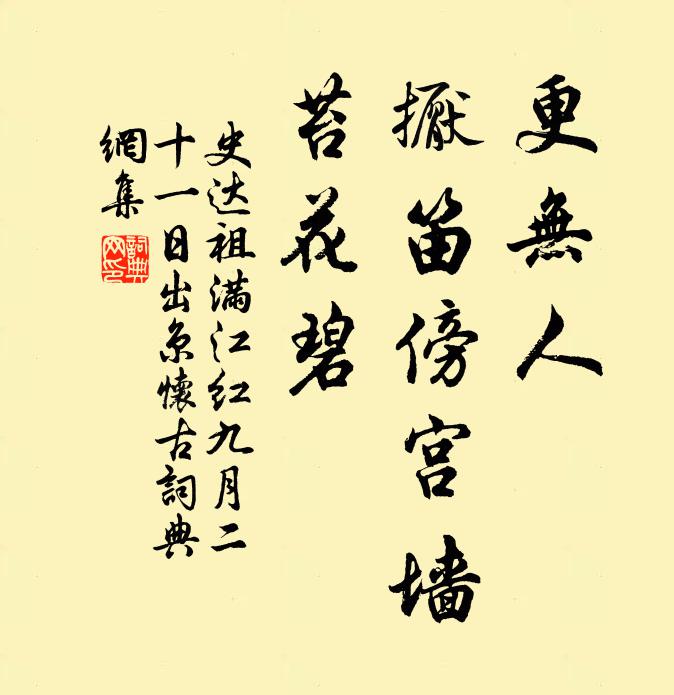 更無人
擫笛傍宫墙
苔花碧
史达祖满江红九月二
十一日出京懷古詞典
網集
詞典
网印